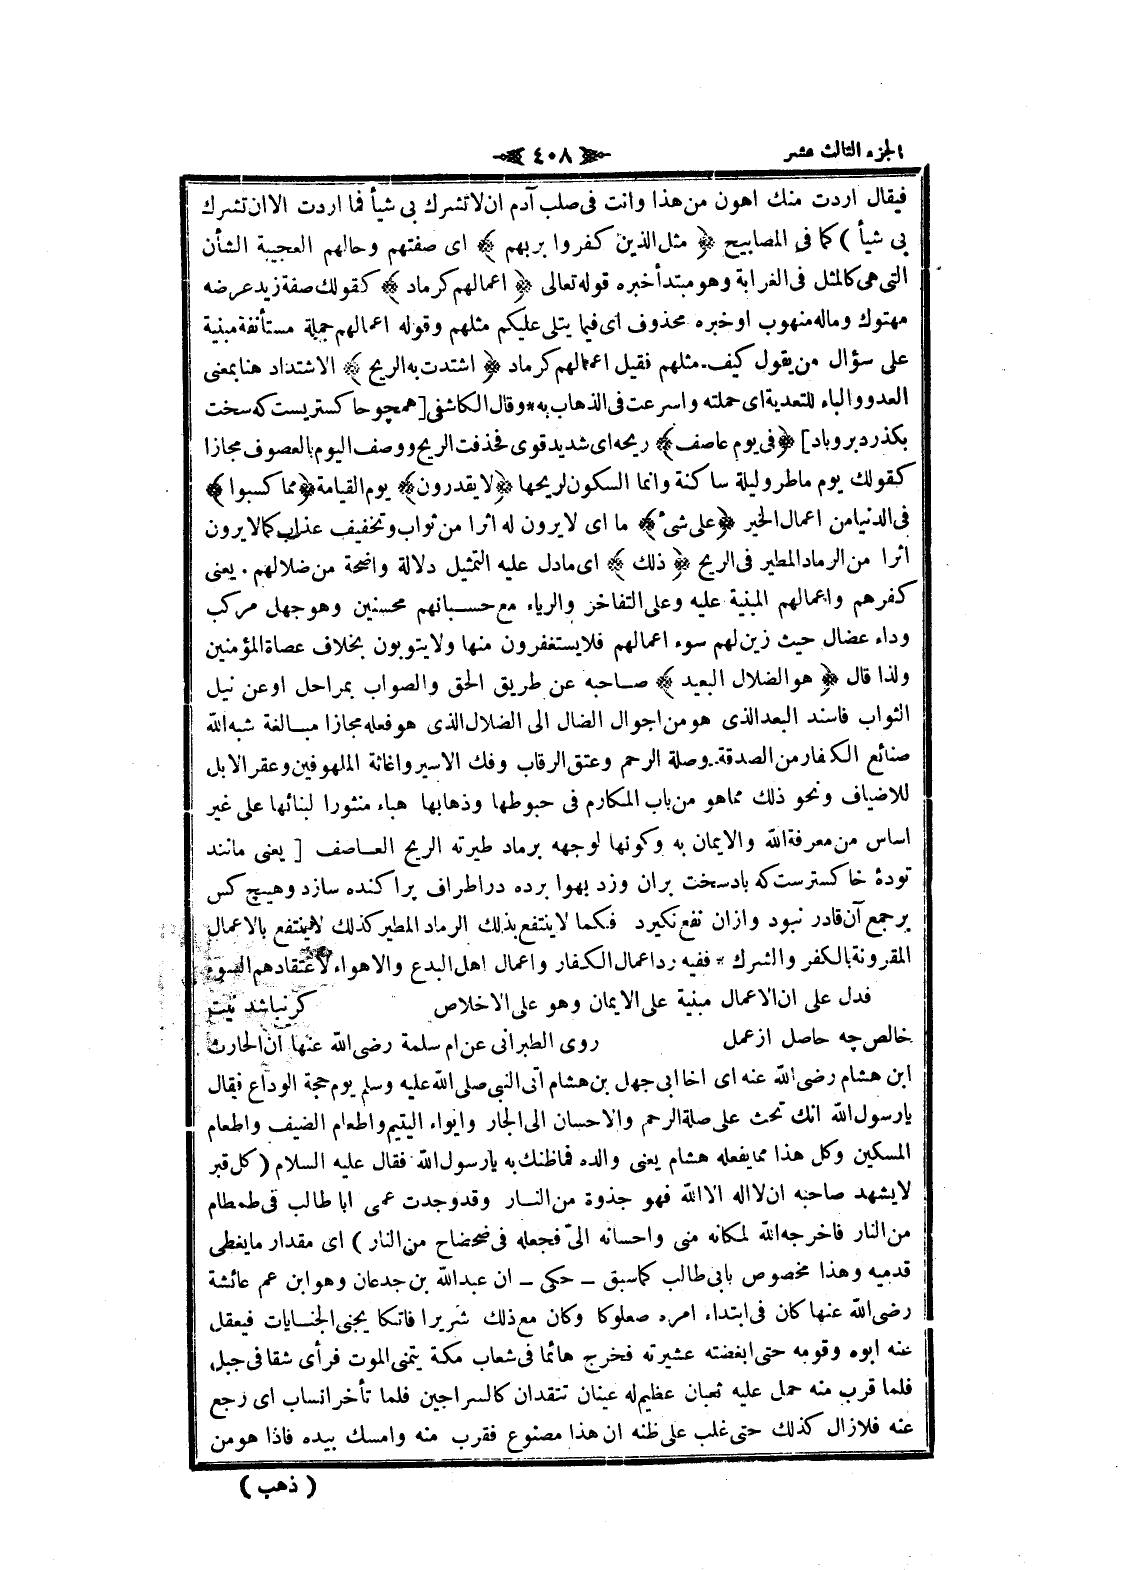 الجزء الثالث عشر
٤٠٨
فيقال اردت منك اهون من هذا وانت فى صلب آدم ان لا تشرك بى شيأ فما اردت الا ان تشرك
بى شيأ ) كما فى المصابيح ﴿ مثل الذين كفروا بربهم ﴾ اى صفتهم وحالهم العجيبة الشأن
التى هى كالمثل فى الغرابة وهو مبتدأ خبره قوله تعالى ﴿ اعمالهم كرماد ﴾ كقولك صفة زيد عرضه
مهتوك وماله منهوب او خبره محذوف اى فيما يتلى عليكم مثلهم وقوله اعمالهم جملة مستأنفة مبنية
على سؤال من يقول كيف مثلهم فقيل اعمالهم كرماد ﴿ اشتدت به الريح ﴾ الاشتداد هنا بمعنى
العدو والباء للتعدية اى حملته واسرعت فى الذهاب به * وقال الكاشفى [ همچو خاكستريست كه سخت
بكذرد برو باد ] ﴿ فى يوم عاصف ﴾ ريحه اى شديد قوى فحذفت الريح ووصف اليوم بالعصوف مجازا
كقولك يوم ماطر وليلة ساكنة وانما السكون لريحها ﴿ لا يقدرون ﴾ يوم القيامة ﴿ مما كسبوا ﴾
فى الدنيا من اعمال الخير ﴿ على شئ ﴾ ما اى لا يرون له اثرا من ثواب وتخفيف عذاب كما لا يرون
اثرا من الرماد المطير فى الريح ﴿ ذلك ﴾ اى مادل عليه التمثيل دلالة واضحة من ضلالهم . يعنى
كفرهم واعمالهم المبنية عليه وعلى التفاخر والرياء مع حسبانهم محسنين وهو جهل مركب
وداء عضال حيث زين لهم سوء اعمالهم فلا يستغفرون منها ولا يتوبون بخلاف عصاة المؤمنين
ولذا قال ﴿ هو الضلال البعيد ﴾ صاحبه عن طريق الحق والصواب بمراحل او عن نيل
الثواب فاسند البعد الذى هو من احوال الضال الى الضلال الذى هو فعله مجازا مبالغة شبه الله
صنائع الكفار من الصدقة وصلة الرحم وعتق الرقاب وفك الاسير واغاثة الملهوفين وعقر الابل
للاضياف ونحو ذلك مما هو من باب المكارم فى حبوطها وذهابها هباء منثورا لبنائها على غير
اساس من معرفة الله والايمان به وكونها لوجهه برماد طيرته الريح العاصف [ يعنى مانند
تودهٔ خاكسترست كه باد سخت بران وزد بهوا برده در اطراف پراكنده سازد وهيچ كس
بر جمع آن قادر نبود وازان نفع نكيرد فكما لا ينتفع بذلك الرماد المطير كذلك لا ينتفع بالاعمال
المقرونة بالكفر والشرك * ففيه رد اعمال الكفار واعمال اهل البدع والاهواء لاعتقادهم السوء
فدل على ان الاعمال مبنية على الايمان وهو على الاخلاص كر نباشد نيت
خالص چه حاصل از عمل روى الطبرانى عن ام سلمة رضى الله عنها ان الحارث
ابن هشام رضى الله عنه اى اخا ابى جهل بن هشام اتى النبى صلى الله عليه وسلم يوم حجة الوداع فقال
يا رسول الله انك تحث على صلة الرحم والاحسان الى الجار وايواء اليتيم واطعام الضيف واطعام
المسكين وكل هذا مما يفعله هشام يعنى والده فما ظنك به يا رسول الله فقال عليه السلام ( كل قبر
لا يشهد صاحبه ان لا اله الا الله فهو جذوة من النار وقد وجدت عمى ابا طالب فى طمطام
من النار فاخرجه الله لمكانه منى واحسانه الىّ فجعله فى ضحضاح من النار ) اى مقدار ما يغطى
قدميه وهذا مخصوص بابى طالب كما سبق ــ حكى ــ ان عبد الله بن جدعان وهو ابن عم عائشة
رضى الله عنها كان فى ابتداء امره صعلوكا وكان مع ذلك شريرا فاتكا يجنى الجنايات فيعقل
عنه ابوه وقومه حتى ابغضته عشيرته فخرج هائما فى شعاب مكة يتمنى الموت فرأى شقا فى جبل
فلما قرب منه حمل عليه ثعبان عظيم له عينان تتقدان كالسراجين فلما تأخر انساب اى رجع
عنه فلا زال كذلك حتى غلب على ظنه ان هذا مصنوع فقرب منه وامسك بيده فاذا هو من
( ذهب )